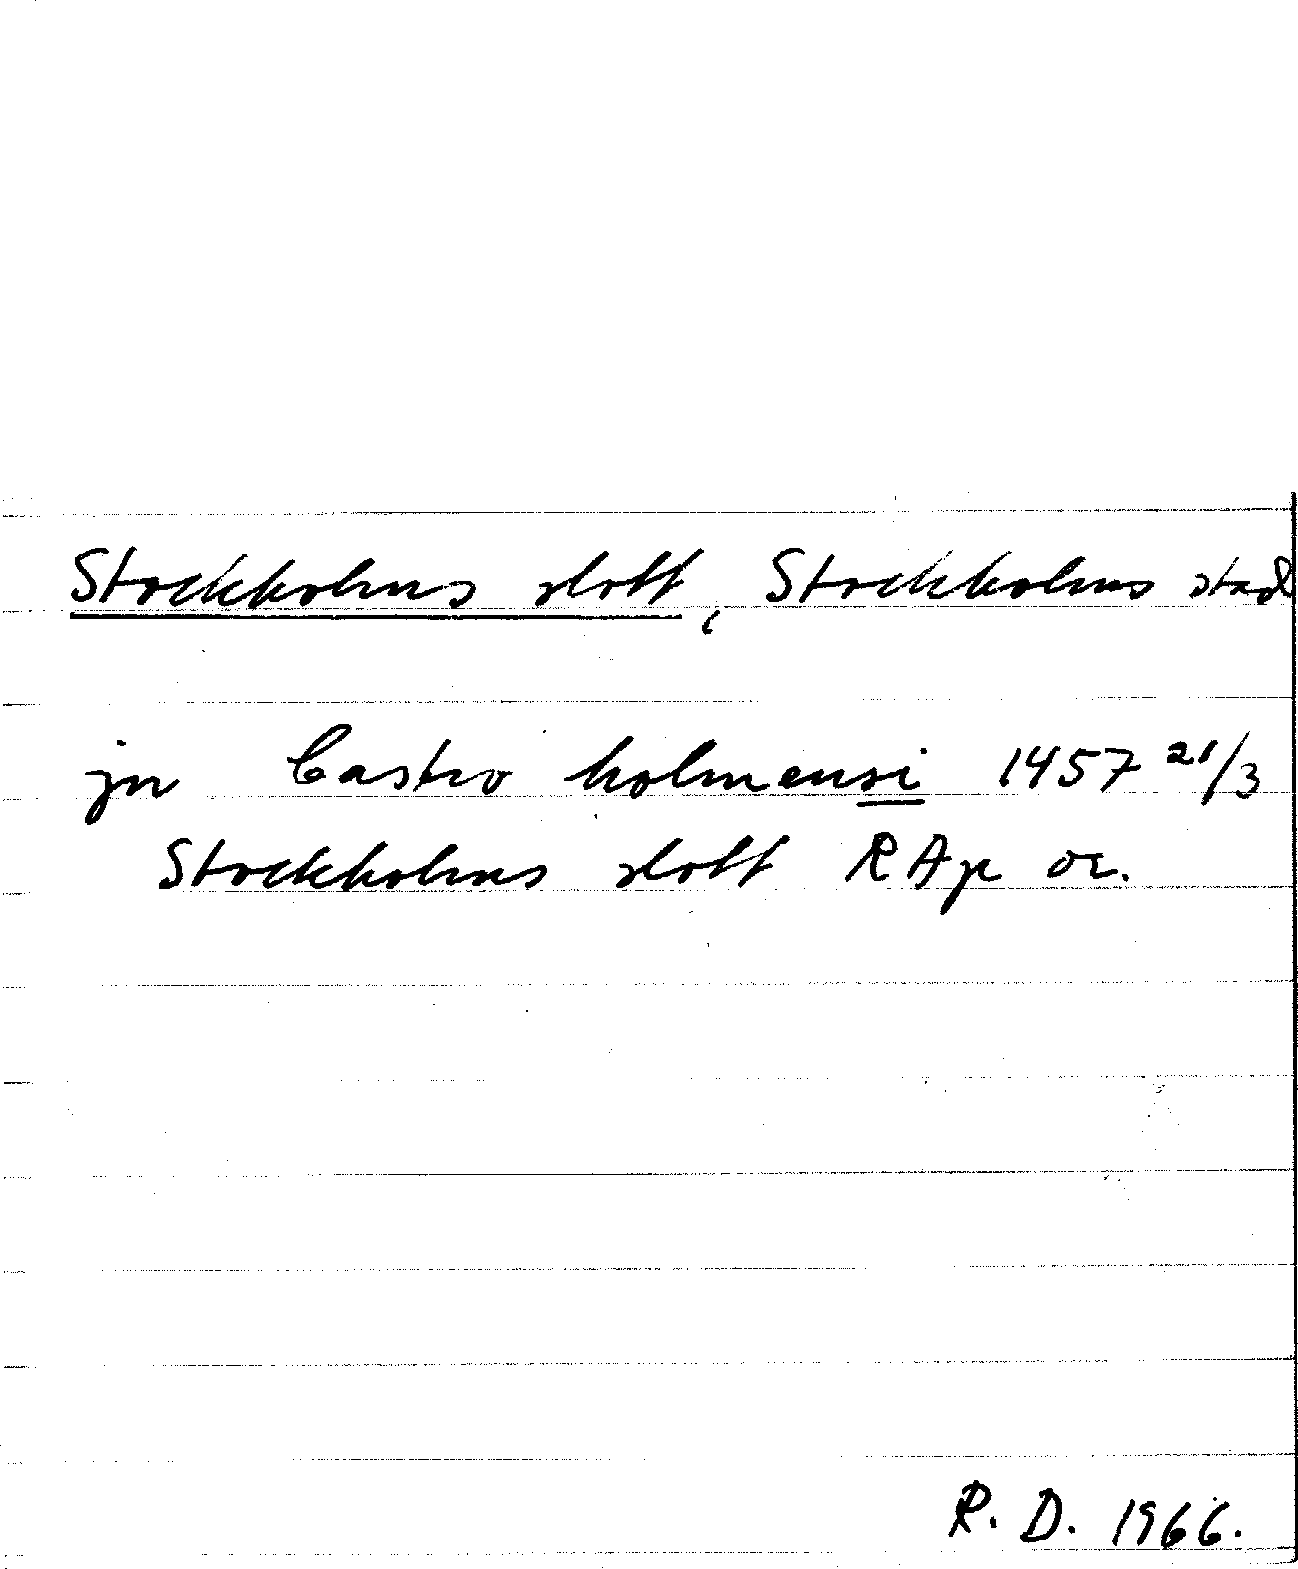 Stockholms slott, Stockholms stad
jn Castro holmensi 1457 21/3
Stockholms slott RAp or.
R. D. 1966.